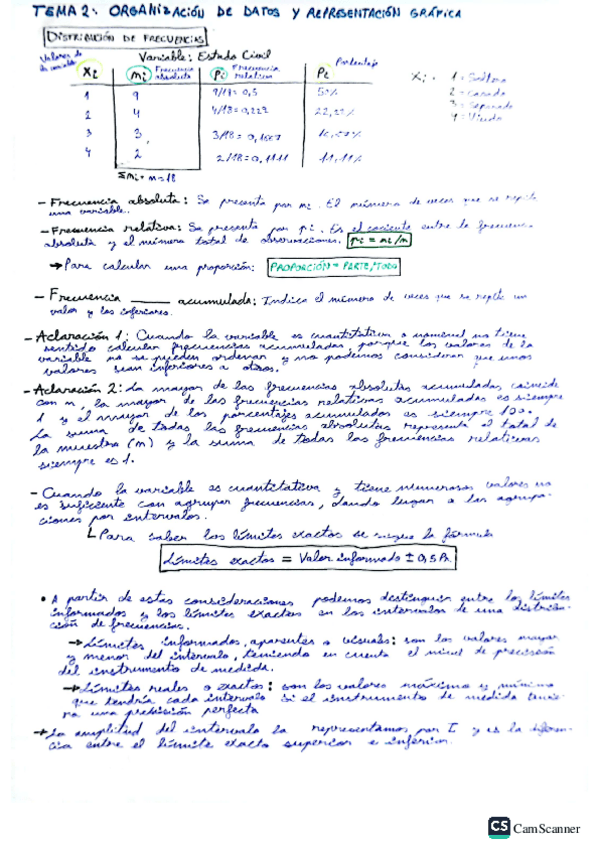 TEMA 2: ORGANIZACIÓN DE DATOS Y REPRESENTACIÓN GRÁFICA
DISTRIBUCIÓN DE FRECUENCIAS
Variable: Estado Civil
Valores de la variable
Xi
mi Frecuencia absoluta
pi Frecuencia relativa
Porcentaje
Pi
1 9 9/18 = 0,5 50%
2 4 4/18 = 0,222 22,22%
3 3 3/18 = 0,1667 16,67%
4 2 2/18 = 0,1111 11,11%
Σmi = m = 18
Xi = 1 = Soltero
2 = Casado
3 = Separado
4 = Viudo
- Frecuencia absoluta: Se presenta por mi. El número de veces que se repite
una variable.
- Frecuencia relativa: Se presenta por pi. Es el cociente entre la frecuencia
absoluta y el número total de observaciones. pi = mi/m
→ Para calcular una proporción: PROPORCIÓN = PARTE/TODO
- Frecuencia ______ acumulada: Indica el número de veces que se repite un
valor y los inferiores.
- Aclaración 1: Cuando la variable es cuantitativa o nominal no tiene
sentido calcular frecuencias acumuladas, porque los valores de la
variable no se pueden ordenar y no podemos considerar que unos
valores sean inferiores a otros.
- Aclaración 2: La mayor de las frecuencias absolutas acumuladas coincide
con n, la mayor de las frecuencias relativas acumuladas es siempre
1 y el mayor de los porcentajes acumulados es siempre 100.
La suma de todas las frecuencias absolutas representa el total de
la muestra (m) y la suma de todas las frecuencias relativas
siempre es 1.
- Cuando la variable es cuantitativa y tiene numerosos valores no
es suficiente con agrupar frecuencias, dando lugar a las agrupa-
ciones por intervalos.
Para saber los límites exactos se sigue la fórmula
Límites exactos = Valor informado ± 0,5 Pr.
• A partir de estas consideraciones podemos distinguir entre los límites
informados y los límites exactos en los intervalos de una distribu-
ción de frecuencias.
→ Límites informados, aparentes o visuales: son los valores mayor
y menor del intervalo, teniendo en cuenta el nivel de precisión
del instrumento de medida.
→ Límites reales o exactos: son los valores máximo y mínimo
que tendría cada intervalo si el instrumento de medida tuvie-
ra una precisión perfecta
→ La amplitud del intervalo la representamos por I y es la diferen-
cia entre el límite exacto superior e inferior.
CS CamScanner